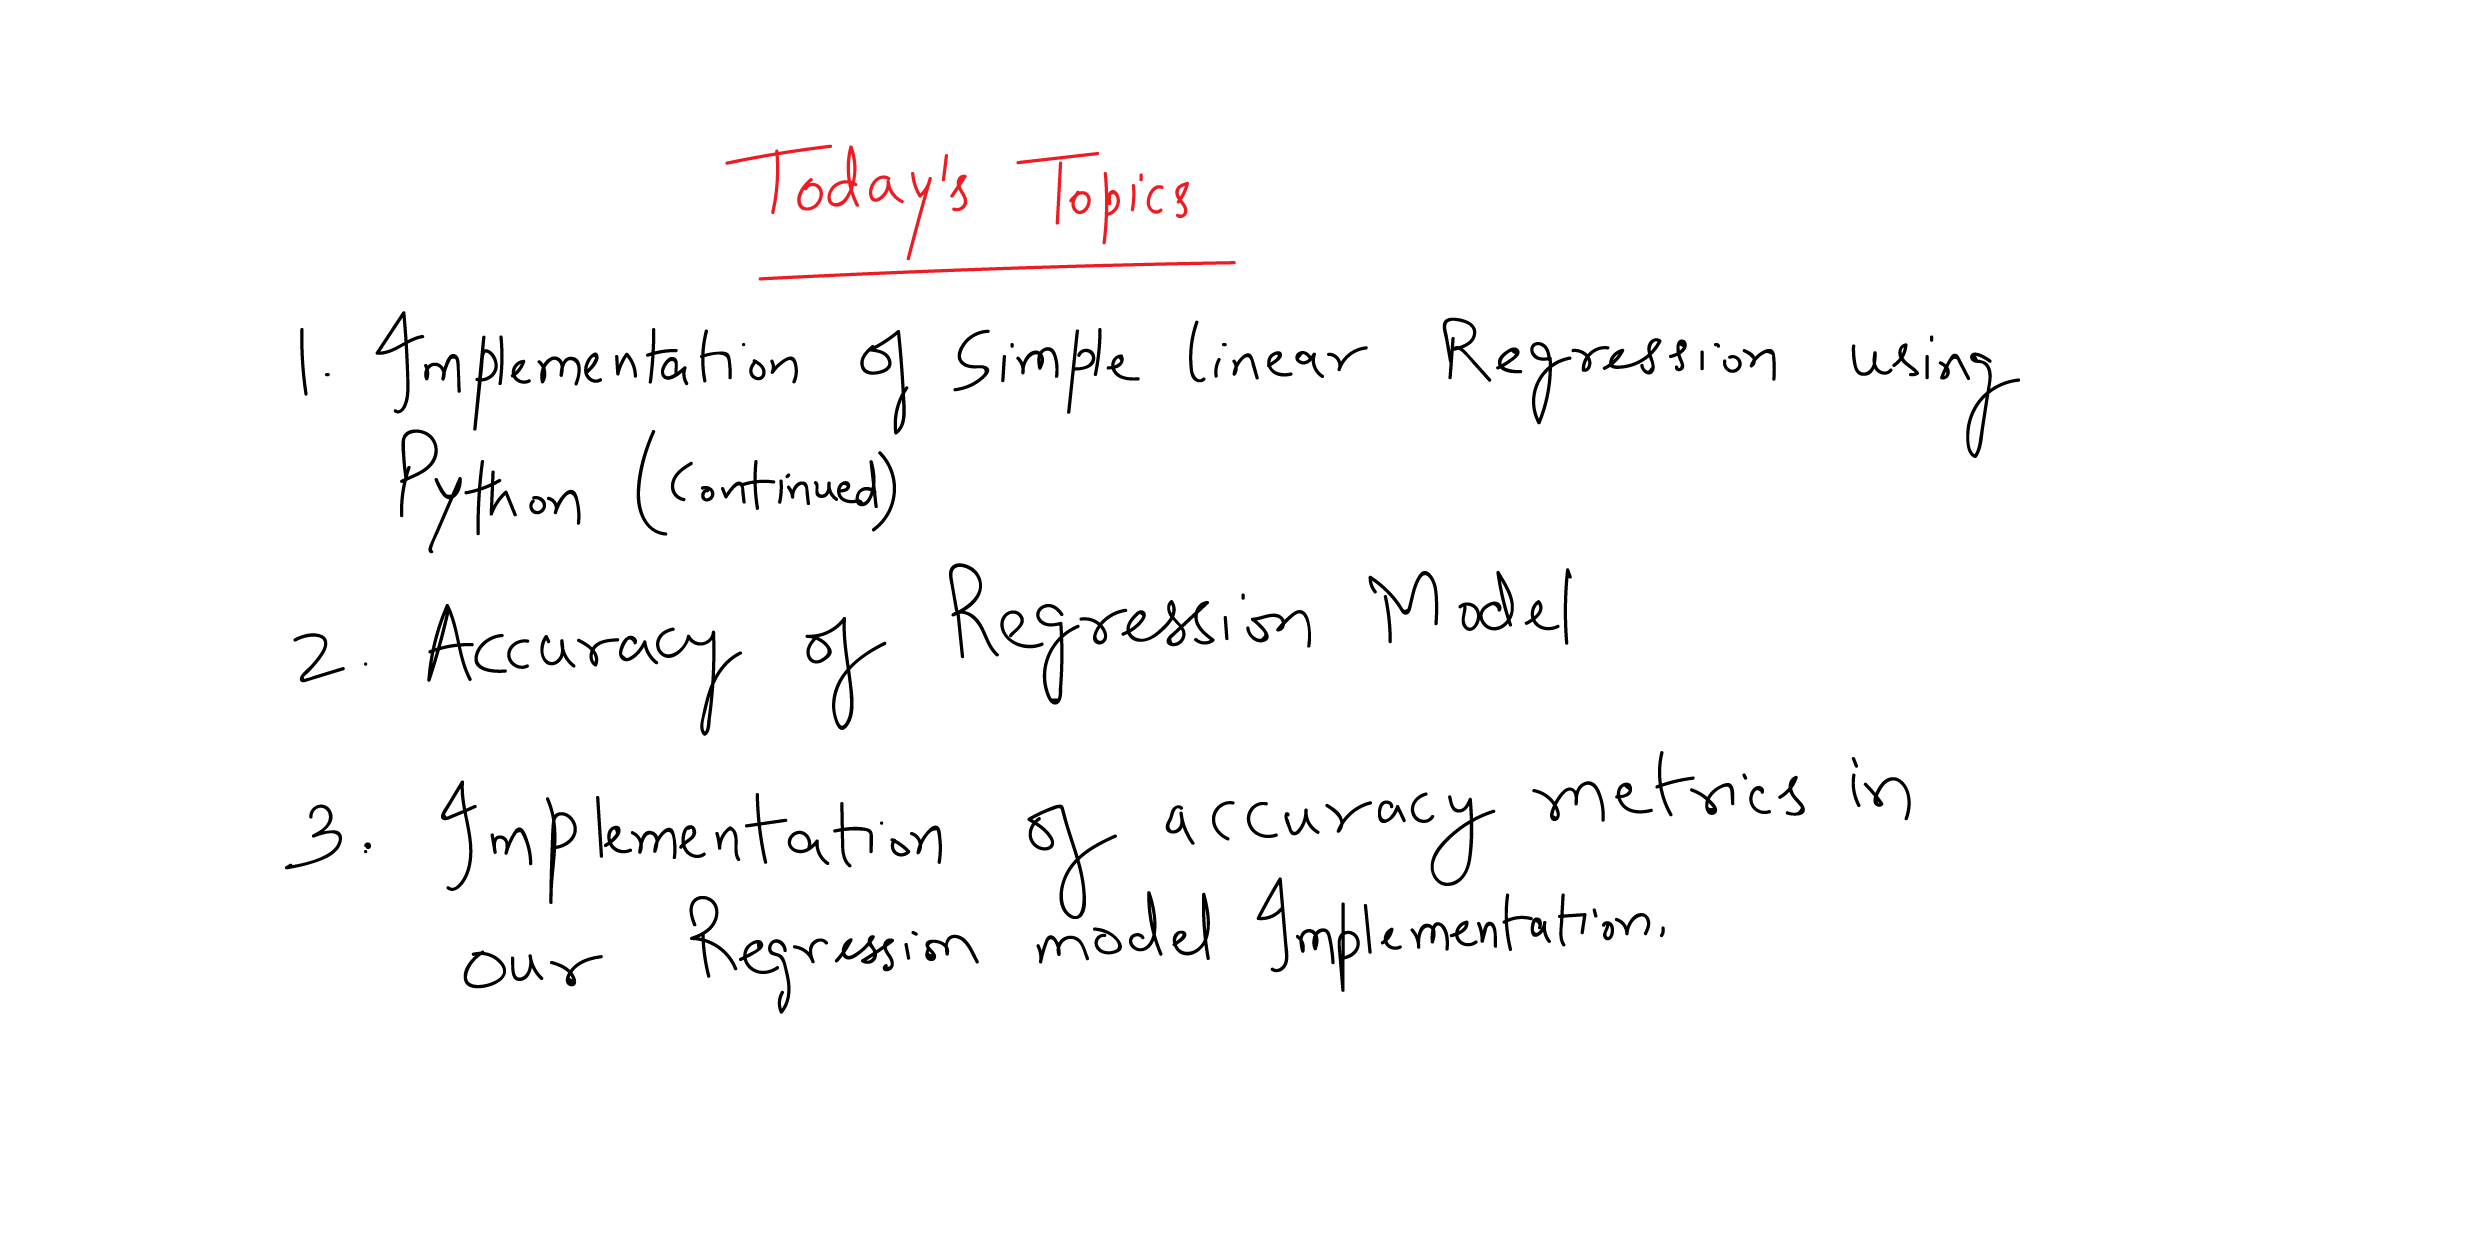 Today's Topics
1. Implementation of Simple linear Regression using
Python (Continued)
2. Accuracy of Regression Model
3. Implementation of accuracy metrics in
our Regression model Implementation.